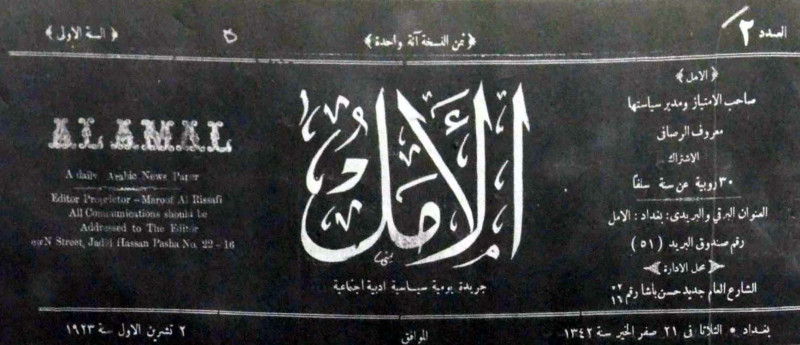 العدد ٢
﴿ ثمن النسخة آنة واحدة ﴾
﴿ السنة الاولى ﴾
﴿ الامل ﴾
صاحب الامتياز ومدير سياستها
معروف الرصافي
الاشتراك
٣٠ روبية عن سنة سلفاً
العنوان البرقي والبريدي: بغداد: الامل
رقم صندوق البريد (٥١)
﴿ محل الادارة ﴾
الشارع العام جديد حسن باشا رقم ٢٢ ١٦
الأمل
جريدة يومية سياسية ادبية اجتماعية
AL AMAL
A daily Arabic News Paper
Editor Proprietor - Marouf Al Rissafi
All Communications should be
Addressed to The Editor
N Street, Jadid Hassan Pasha No. 22 - 16
بغداد * الثلاثا في ٢١ صفر الخير سنة ١٣٤٢
الموافق
٢ تشرين الاول سنة ١٩٢٣